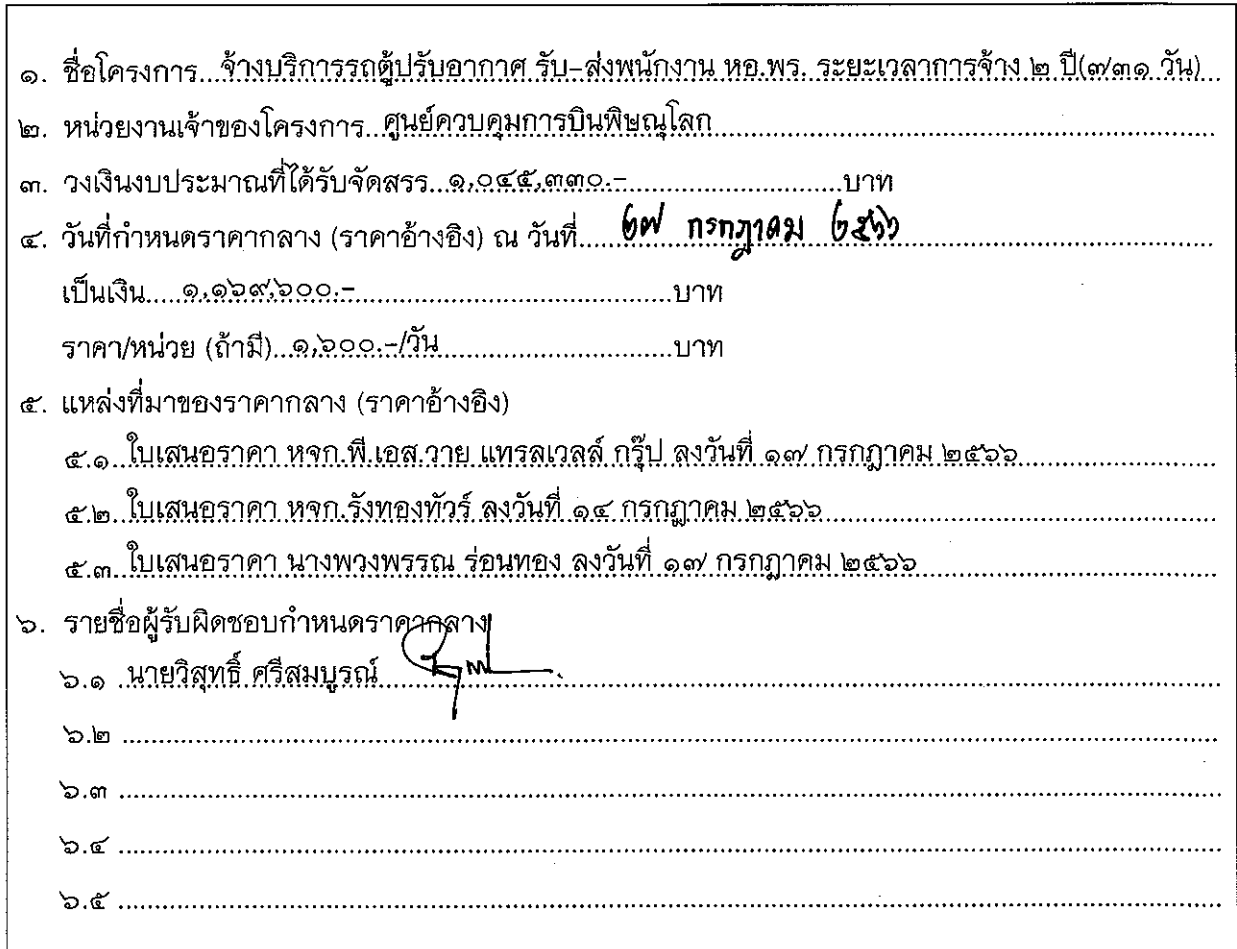 ๑. ชื่อโครงการ...จ้างบริการรถตู้ปรับอากาศ รับ-ส่งพนักงาน หอ.พร. ระยะเวลาการจ้าง ๒ ปี(๗๓๑ วัน)...
๒. หน่วยงานเจ้าของโครงการ...ศูนย์ควบคุมการบินพิษณุโลก...
๓. วงเงินงบประมาณที่ได้รับจัดสรร...๑,๐๔๕,๓๓๐.-...บาท
๔. วันที่กำหนดราคากลาง (ราคาอ้างอิง) ณ วันที่...๒๗ กรกฎาคม ๒๕๖๖...
เป็นเงิน...๑,๑๖๙,๖๐๐.-...บาท
ราคา/หน่วย (ถ้ามี)...๑,๖๐๐.-/วัน...บาท
๕. แหล่งที่มาของราคากลาง (ราคาอ้างอิง)
๕.๑ ใบเสนอราคา หจก.พี.เอส.วาย แทรลเวลล์ กรุ๊ป ลงวันที่ ๑๗ กรกฎาคม ๒๕๖๖...
๕.๒ ใบเสนอราคา หจก.รังทองทัวร์ ลงวันที่ ๑๔ กรกฎาคม ๒๕๖๖...
๕.๓ ใบเสนอราคา นางพวงพรรณ ร่อนทอง ลงวันที่ ๑๗ กรกฎาคม ๒๕๖๖...
๖. รายชื่อผู้รับผิดชอบกำหนดราคากลาง
๖.๑ นายวิสุทธิ์ ศรีสมบูรณ์...
๖.๒ ...
๖.๓ ...
๖.๔ ...
๖.๕ ...